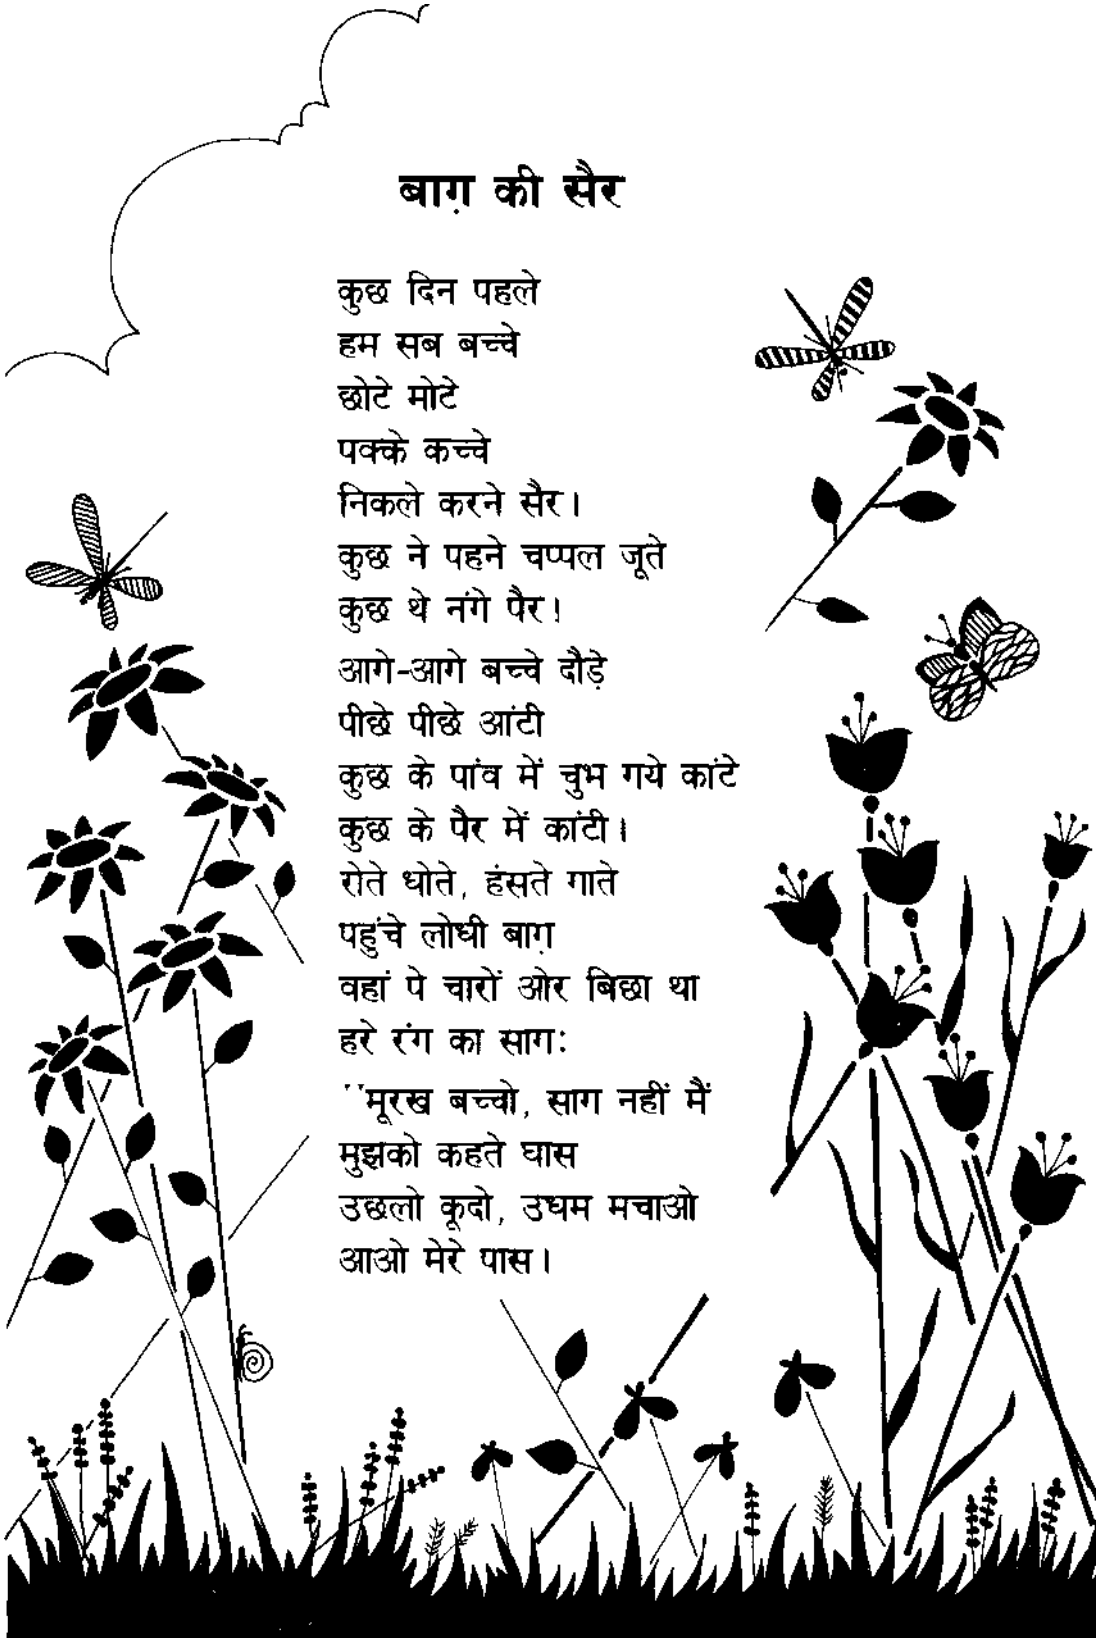 बाग़ की सैर
कुछ दिन पहले
हम सब बच्चे
छोटे मोटे
पक्के कच्चे
निकले करने सैर।
कुछ ने पहने चप्पल जूते
कुछ थे नंगे पैर!
आगे-आगे बच्चे दौड़े
पीछे पीछे आंटी
कुछ के पांव में चुभ गये कांटे
कुछ के पैर में कांटी।
रोते धोते, हंसते गाते
पहुंचे लोधी बाग़
वहां पे चारों ओर बिछा था
हरे रंग का साग:
"मूरख बच्चो, साग नहीं मैं
मुझको कहते घास
उछलो कूदो, उधम मचाओ
आओ मेरे पास।